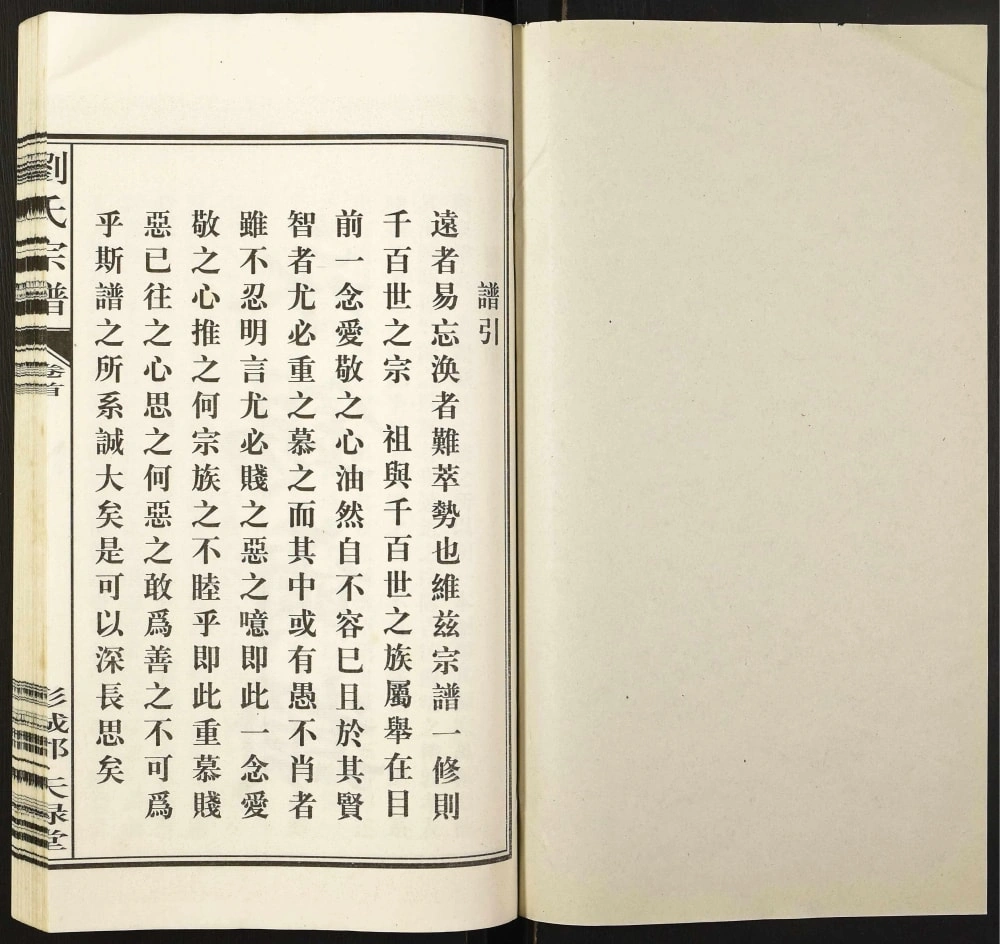 譜引
遠者易忘渙者難萃勢也維兹宗譜一修則
千百世之宗　祖與千百世之族屬舉在目
前一念愛敬之心油然自不容巳且於其賢
智者尤必重之慕之而其中或有愚不肖者
雖不忍明言尤必賤之惡之噫即此一念愛
敬之心推之何宗族之不睦乎即此重慕賤
惡已往之心思之何惡之敢爲善之不可爲
乎斯譜之所系誠大矣是可以深長思矣
劉氏宗譜
卷首
彭城郡　天祿堂